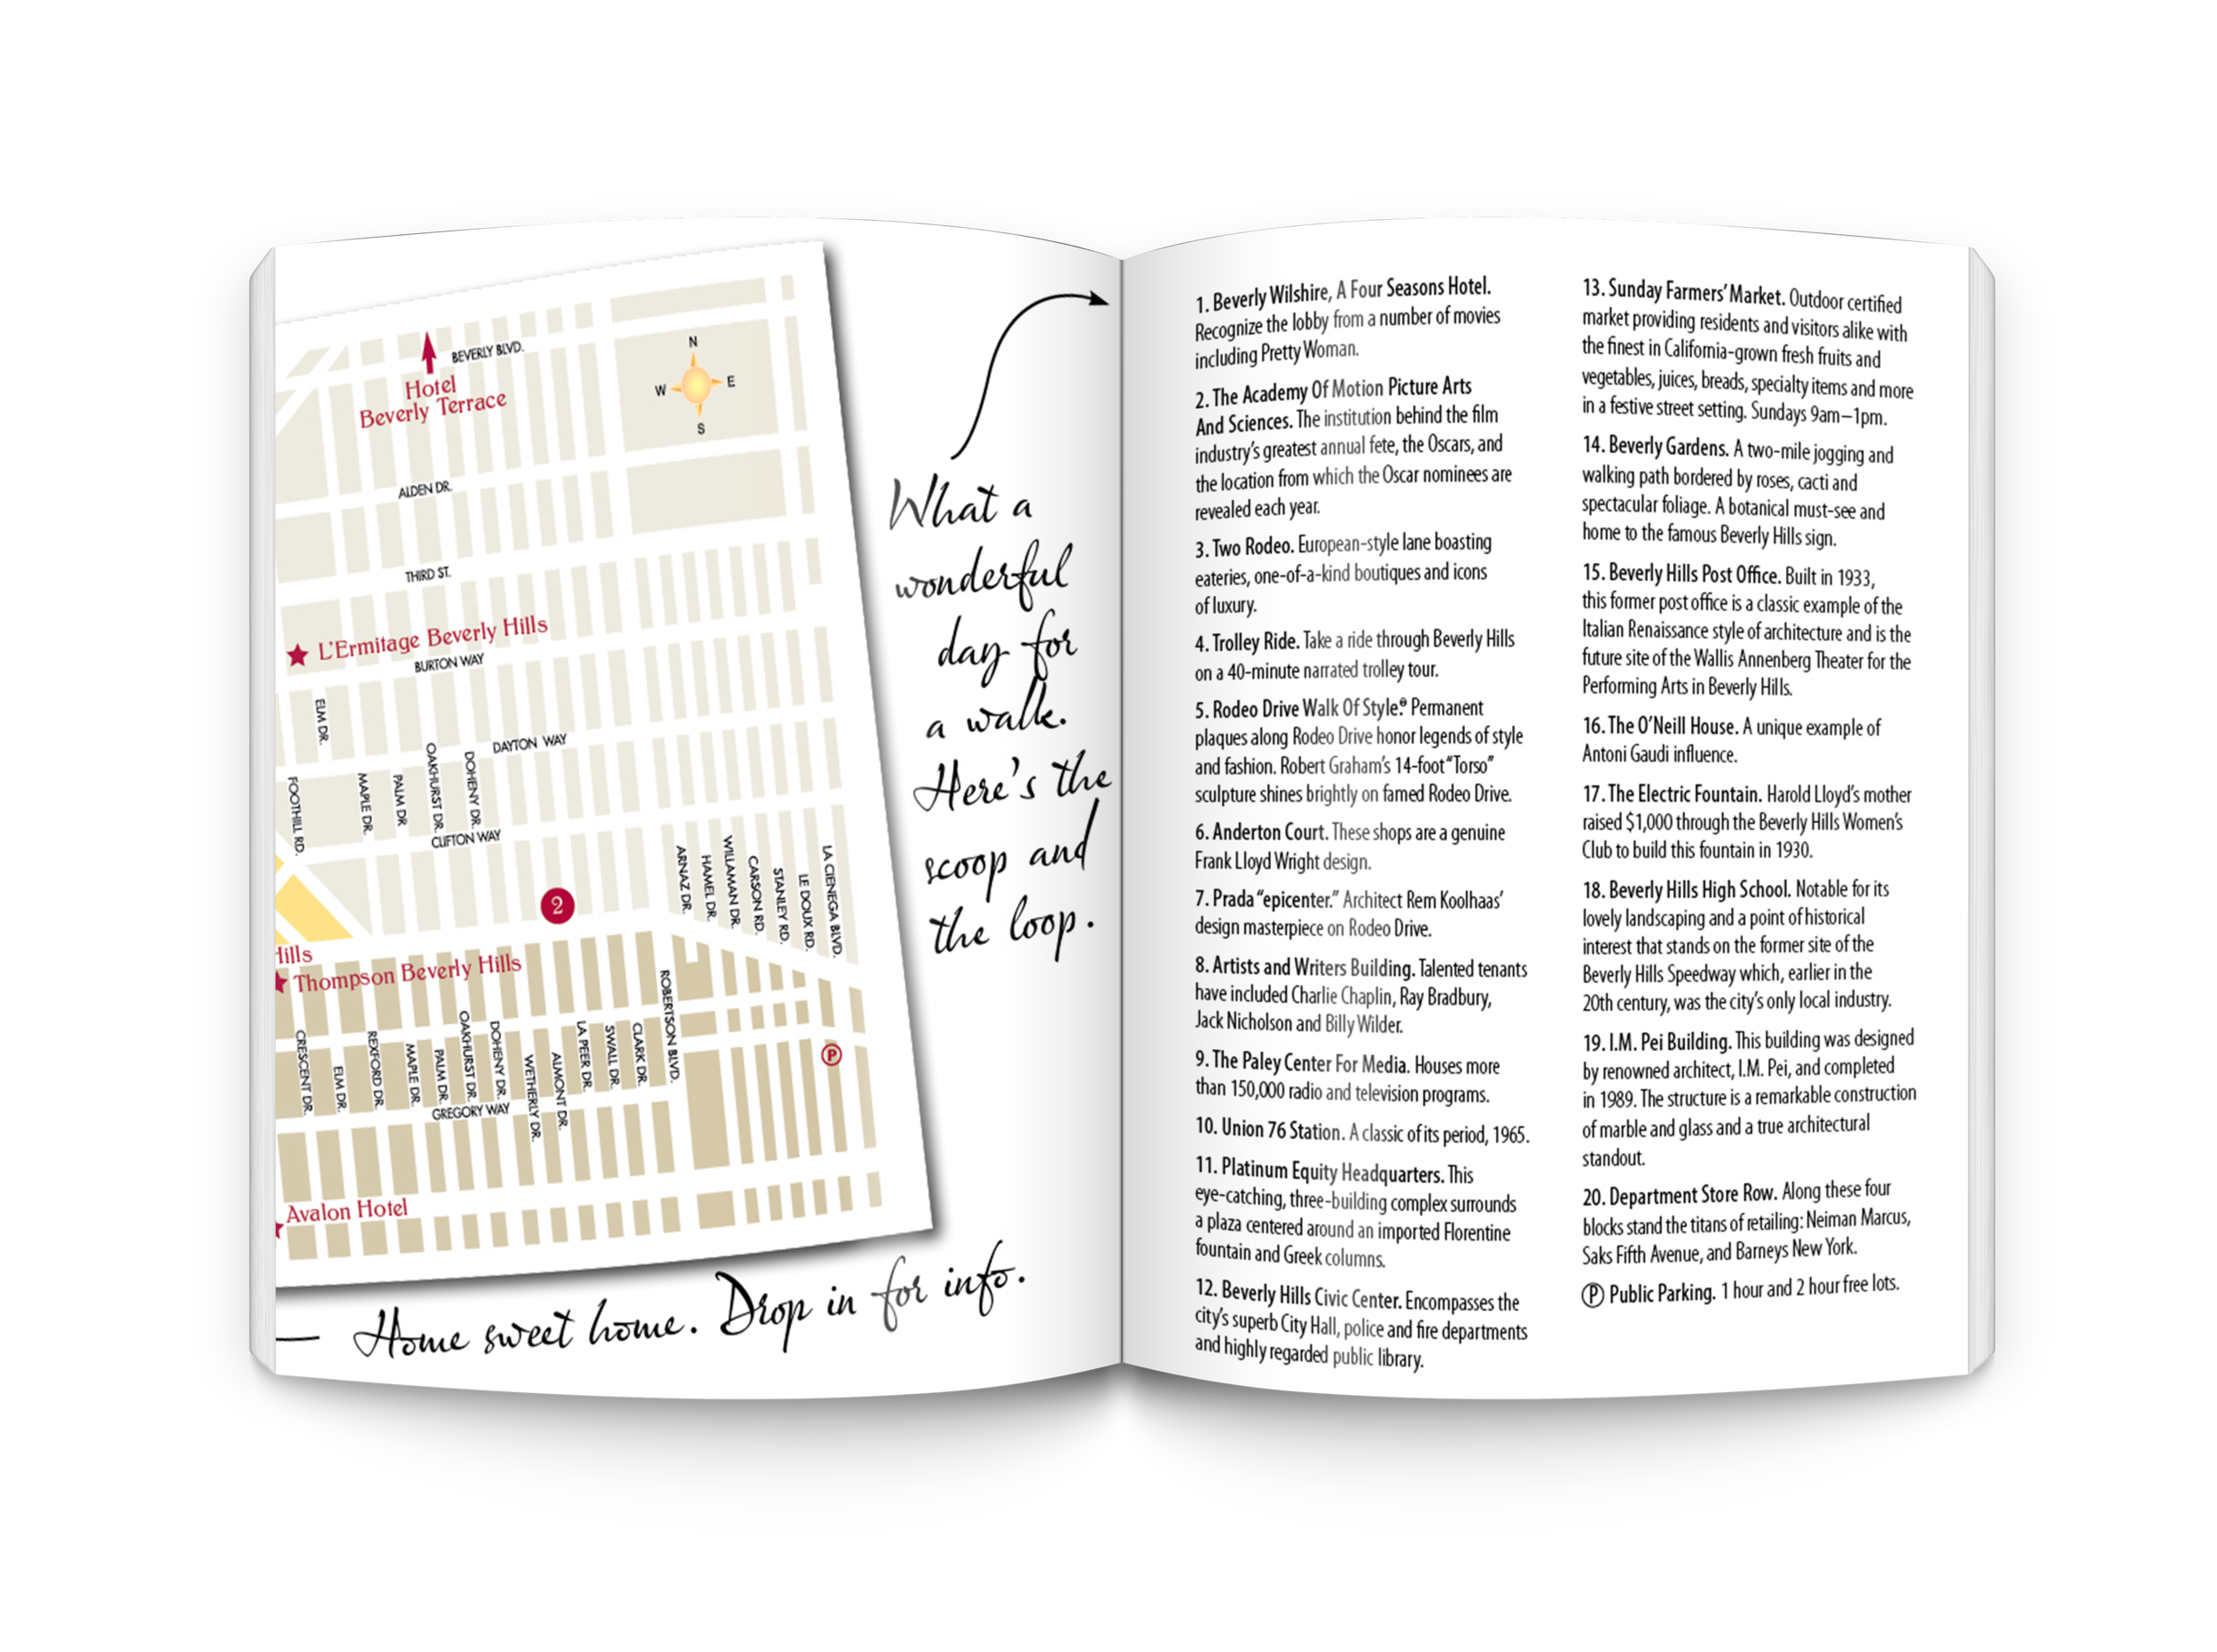 BEVERLY BLVD.
Hotel
Beverly Terrace
N
W
E
S
ALDEN DR.
THIRD ST.
L'Ermitage Beverly Hills
BURTON WAY
ELM DR.
FOOTHILL RD.
MAPLE DR.
PALM DR
OAKHURST DR.
DOHENY DR.
DAYTON WAY
CLIFTON WAY
ARNAZ DR.
HAMEL DR.
WILLAMAN DR.
CARSON RD.
STANLEY RD.
LE DOUX RD.
LA CIENEGA BLVD.
2
Hills
Thompson Beverly Hills
CRESCENT DR.
ELM DR.
REXFORD DR.
MAPLE DR.
PALM DR.
OAKHURST DR.
DOHENY DR.
WETHERLY DR.
ALMONT DR.
LA PEER DR.
SWALL DR.
CLARK DR.
ROBERTSON BLVD.
P
GREGORY WAY
Avalon Hotel
What a
wonderful
day for
a walk.
Here's the
scoop and
the loop.
— Home sweet home. Drop in for info.
1. Beverly Wilshire, A Four Seasons Hotel.
Recognize the lobby from a number of movies
including Pretty Woman.
2. The Academy Of Motion Picture Arts
And Sciences. The institution behind the film
industry's greatest annual fete, the Oscars, and
the location from which the Oscar nominees are
revealed each year.
3. Two Rodeo. European-style lane boasting
eateries, one-of-a-kind boutiques and icons
of luxury.
4. Trolley Ride. Take a ride through Beverly Hills
on a 40-minute narrated trolley tour.
5. Rodeo Drive Walk Of Style.® Permanent
plaques along Rodeo Drive honor legends of style
and fashion. Robert Graham's 14-foot "Torso"
sculpture shines brightly on famed Rodeo Drive.
6. Anderton Court. These shops are a genuine
Frank Lloyd Wright design.
7. Prada "epicenter." Architect Rem Koolhaas'
design masterpiece on Rodeo Drive.
8. Artists and Writers Building. Talented tenants
have included Charlie Chaplin, Ray Bradbury,
Jack Nicholson and Billy Wilder.
9. The Paley Center For Media. Houses more
than 150,000 radio and television programs.
10. Union 76 Station. A classic of its period, 1965.
11. Platinum Equity Headquarters. This
eye-catching, three-building complex surrounds
a plaza centered around an imported Florentine
fountain and Greek columns.
12. Beverly Hills Civic Center. Encompasses the
city's superb City Hall, police and fire departments
and highly regarded public library.
13. Sunday Farmers' Market. Outdoor certified
market providing residents and visitors alike with
the finest in California-grown fresh fruits and
vegetables, juices, breads, specialty items and more
in a festive street setting. Sundays 9am–1pm.
14. Beverly Gardens. A two-mile jogging and
walking path bordered by roses, cacti and
spectacular foliage. A botanical must-see and
home to the famous Beverly Hills sign.
15. Beverly Hills Post Office. Built in 1933,
this former post office is a classic example of the
Italian Renaissance style of architecture and is the
future site of the Wallis Annenberg Theater for the
Performing Arts in Beverly Hills.
16. The O'Neill House. A unique example of
Antoni Gaudi influence.
17. The Electric Fountain. Harold Lloyd's mother
raised $1,000 through the Beverly Hills Women's
Club to build this fountain in 1930.
18. Beverly Hills High School. Notable for its
lovely landscaping and a point of historical
interest that stands on the former site of the
Beverly Hills Speedway which, earlier in the
20th century, was the city's only local industry.
19. I.M. Pei Building. This building was designed
by renowned architect, I.M. Pei, and completed
in 1989. The structure is a remarkable construction
of marble and glass and a true architectural
standout.
20. Department Store Row. Along these four
blocks stand the titans of retailing: Neiman Marcus,
Saks Fifth Avenue, and Barneys New York.
Ⓟ Public Parking. 1 hour and 2 hour free lots.